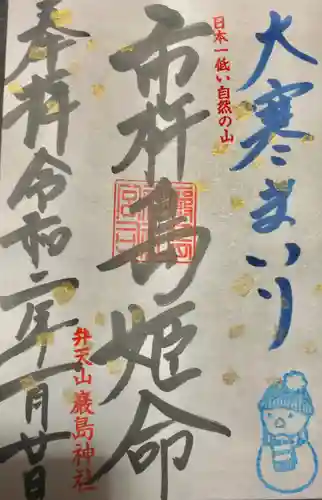 大寒まいり
日本一低い自然の山
市杵島姫命
弁天山巌島神社
奉拝令和二年一月廿日